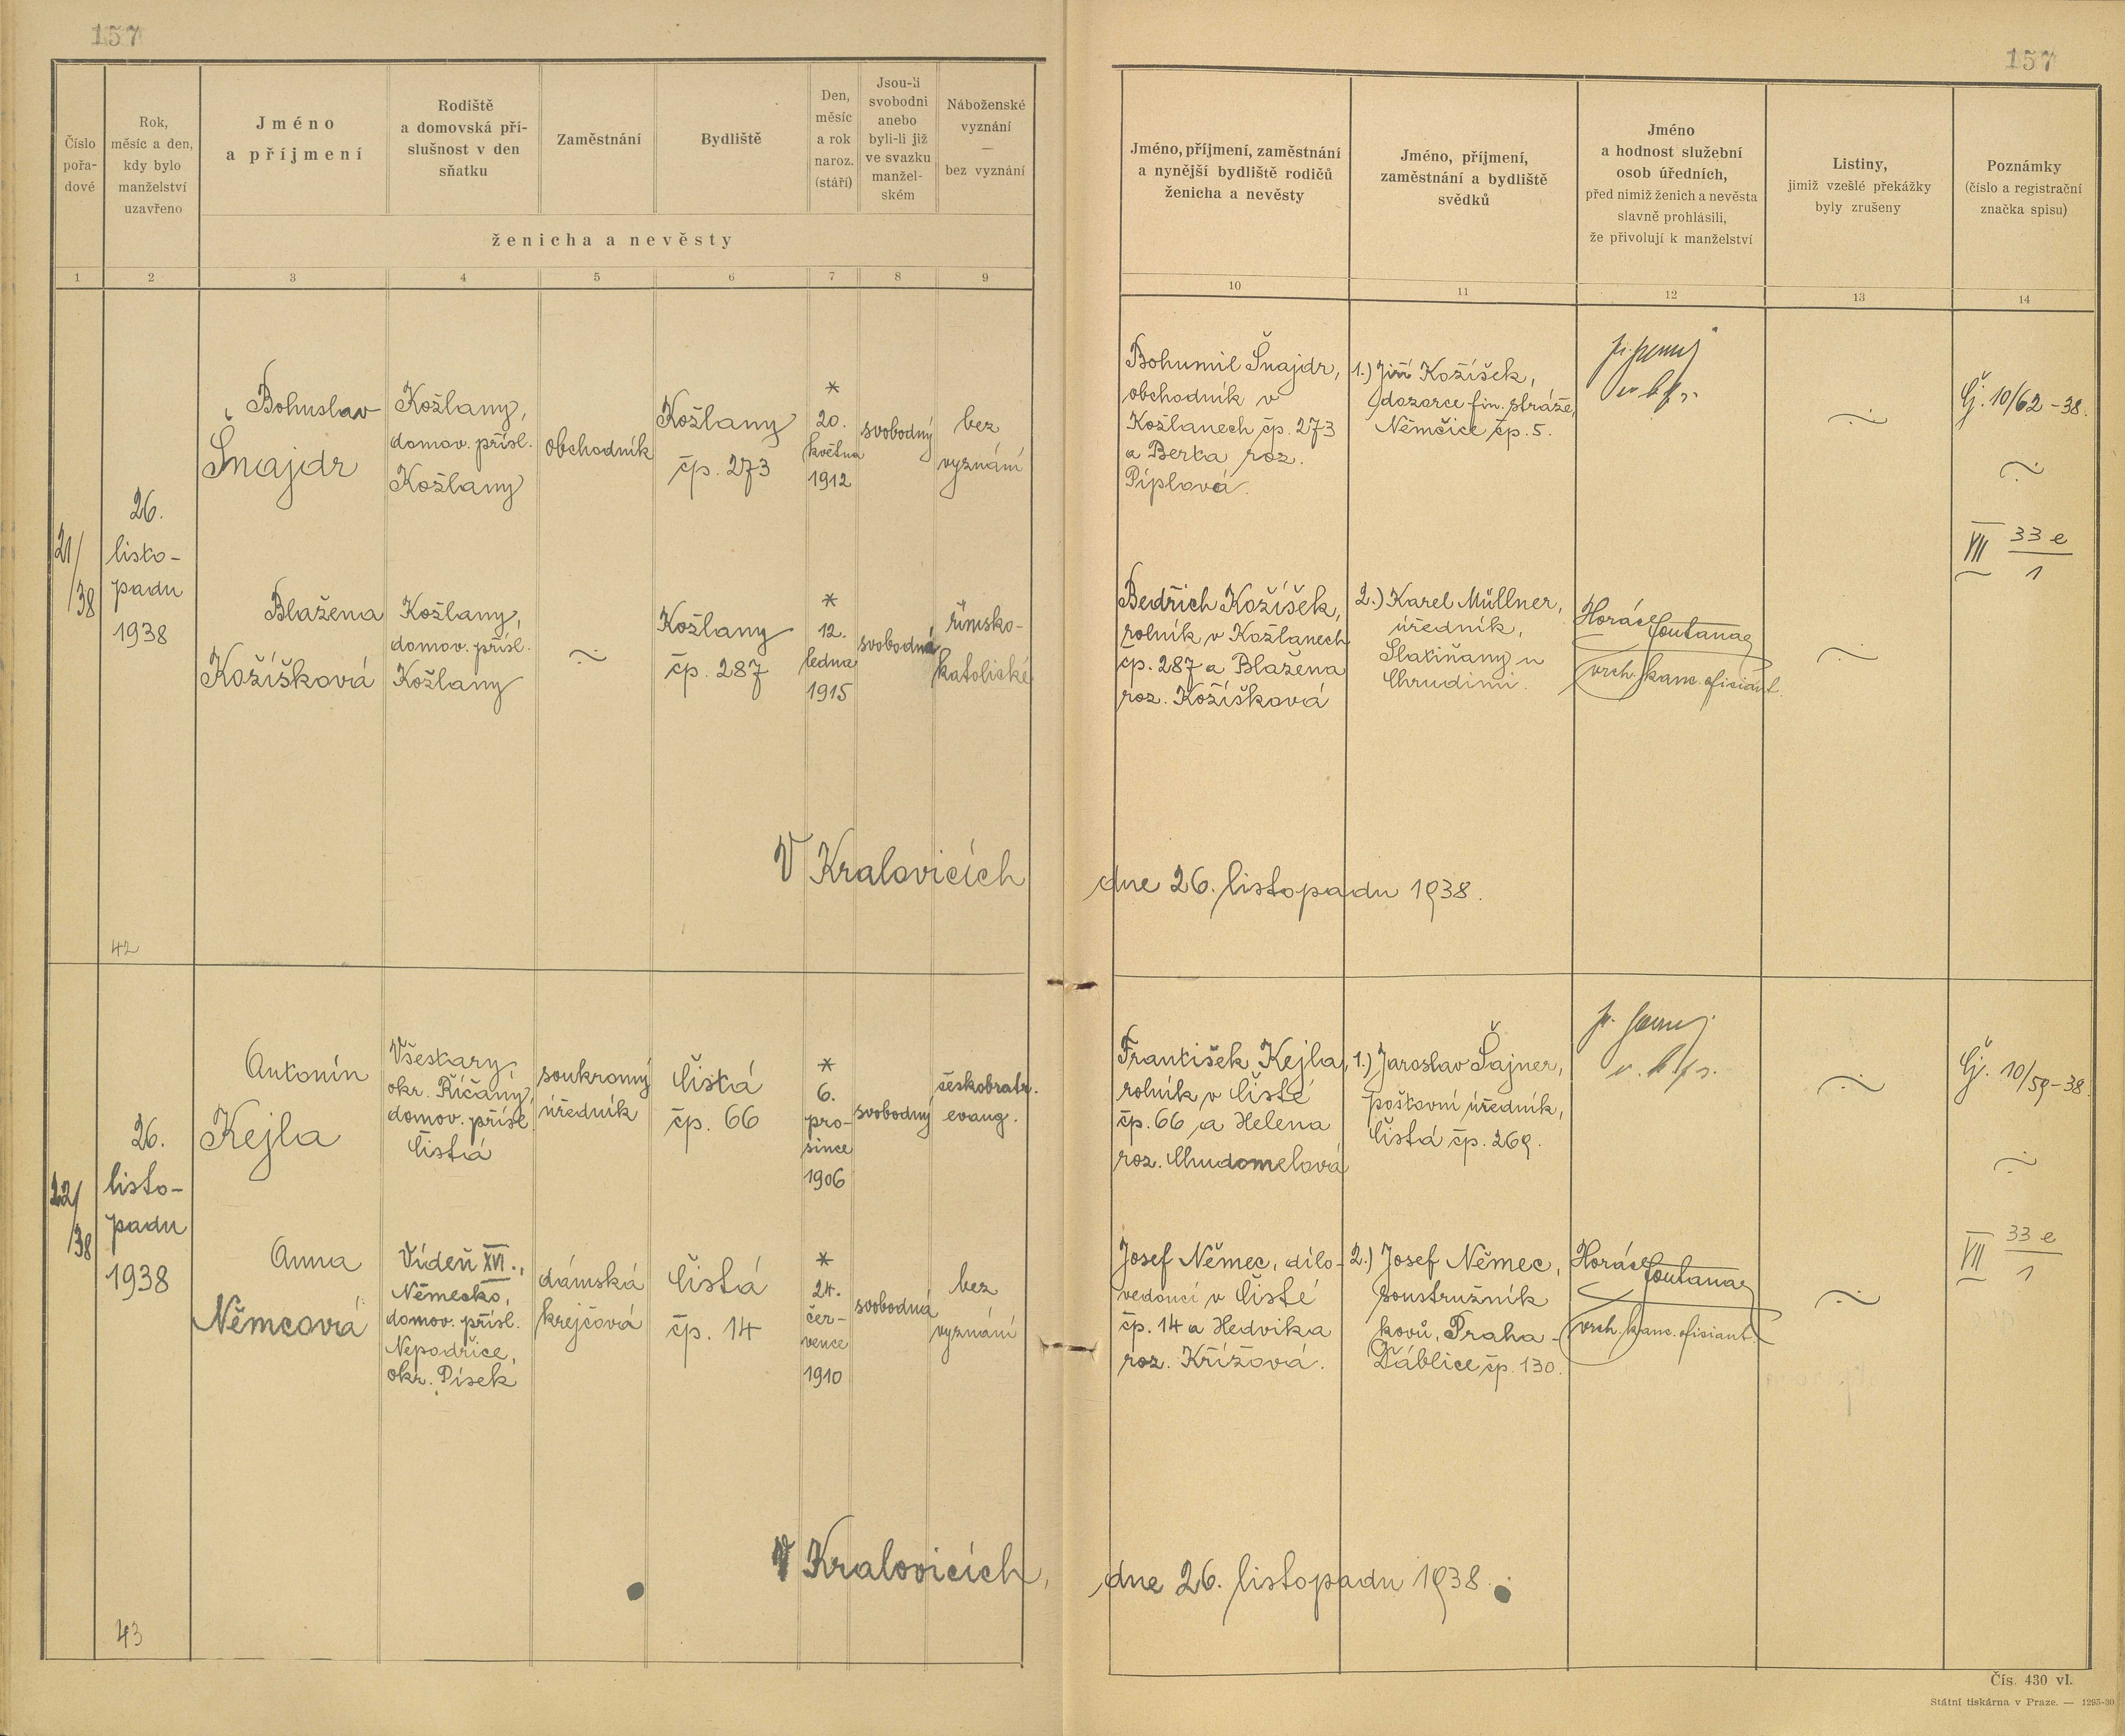 157
157
Číslo
pořa-
dové
Rok,
měsíc a den,
kdy bylo
manželství
uzavřeno
Jméno
a příjmení
Rodiště
a domovská pří-
slušnost v den
sňatku
Zaměstnání
Bydliště
Den,
měsíc
a rok
naroz.
(stáří)
Jsou-li
svobodni
anebo
byli-li již
ve svazku
manžel-
ském
Náboženské
vyznání
—
bez vyznání
ženicha a nevěsty
Jméno, příjmení, zaměstnání
a nynější bydliště rodičů
ženicha a nevěsty
Jméno, příjmení,
zaměstnání a bydliště
svědků
Jméno
a hodnost služební
osob úředních,
před nimiž ženich a nevěsta
slavně prohlásili,
že přivolují k manželství
Listiny,
jimiž vzešlé překážky
byly zrušeny
Poznámky
(číslo a registrační
značka spisu)
1 2 3 4 5 6 7 8 9 10 11 12 13 14
21/
/38
26.
listo-
padu
1938
Bohuslav
Šnajdr
Kožlany,
domov. přísl.
Kožlany
obchodník
Kožlany
čp. 273
*
20.
května
1912
svobodný
bez
vyznání
Bohumil Šnajdr,
obchodník v
Kožlanech čp. 273
a Berta roz.
Píplová.
1.) Jiří Kožíšek,
dozorce fin. stráže,
Němčice čp. 5.
Čj. 10/62-38.
VII 33 e
1
Blažena
Kožíšková
Kožlany,
domov. přísl.
Kožlany
Kožlany
čp. 287
*
12.
ledna
1915
svobodná
římsko-
katolické
Bedřich Kožíšek,
rolník v Kožlanech
čp. 287 a Blažena
roz. Kožíšková
2.) Karel Müllner,
úředník,
Slatiňany u
Chrudimi.
vrch. kanc. oficiant.
V Kralovicích dne 26. listopadu 1938.
42
22/
/38
26.
listo-
padu
1938
Antonín
Kejla
Všestary,
okr. Říčany,
domov. přísl.
Čistá
soukromý
úředník
Čistá
čp. 66
*
6.
pro-
since
1906
svobodný
českobratr.
evang.
František Kejla,
rolník v Čisté
čp. 66 a Helena
roz. Chudomelová
1.) Jaroslav Šajner,
poštovní úředník,
Čistá čp. 269.
Čj. 10/59-38.
VII 33 e
1
Anna
Němcová
Vídeň XVI.,
Německo,
domov. přísl.
Nepodřice,
okr. Písek
dámská
krejčová
Čistá
čp. 14
*
24.
čer-
vence
1910
svobodná
bez
vyznání
Josef Němec, dílo-
vedoucí v Čisté
čp. 14 a Hedvika
roz. Křížová.
2.) Josef Němec,
soustružník
kovů, Praha -
Ďáblice čp. 130.
vrch. kanc. oficiant.
V Kralovicích, dne 26. listopadu 1938.
43
Čís. 430 vl.
Státní tiskárna v Praze. — 1295-30